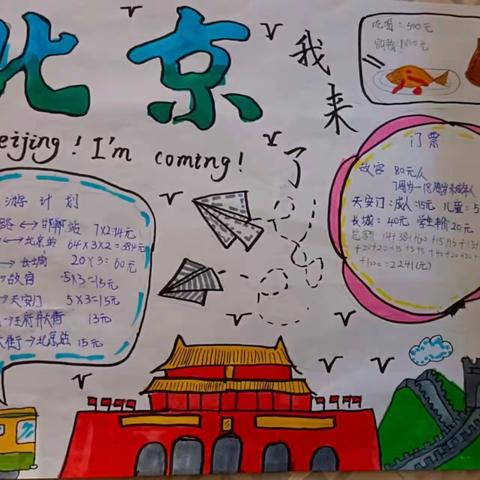 北京
我来了
eijing! I'm coming!
吃喝：500元
购物：1000元
门票
故宫 80元/人
7周岁-18周岁未成年人
天安门：成人15元 儿童：5
长城：40元 学生半价20元
总额
+1000=2241(元)
游计划
路 ↔ 邯郸站 7×2=14元
↔ 北京站 64×3×2=384元
→ 长城 20×3=60元
→ 故宫 5×3=15元
→ 天安门 5×3=15元
→ 王府井大街 13元
大街 → 北京站 15元